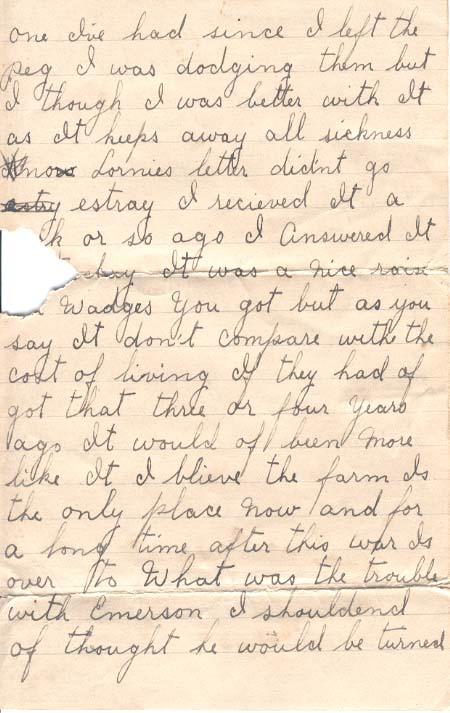 one I've had since I left the
peg I was dodging them but
I though I was better with It
as It keeps away all sickness
now Lornies letter didn't go
estry estray I recieved It a
k or so ago I Answered It
It was a nice raise
Wadges You got but as you
say It don't compare with the
cost of living If they had of
got that three or four Years
ago It would of been More
like It I blieve the farm Is
the only place Now and for
a long time after this war Is
over to What was the trouble
with Emerson I shouldend
of thought he would be turned